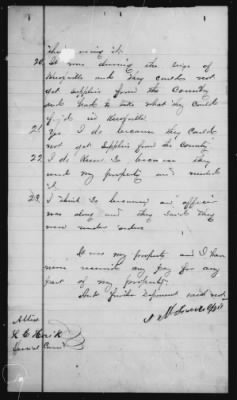 their using it.
20 It was during the siege of
Knoxville and they could not
get supplies from the Country
and had to take what they could
get in Knoxville
21. Yes I do because they could
not get supplies from the Country
22. I do because they
used my property and needed
it.
23. I think so because an officer
was along and they said they
were under orders
It was my property and I have
never received any pay for any
part of my property.
And further Deponent saith not
Attest
Special Com